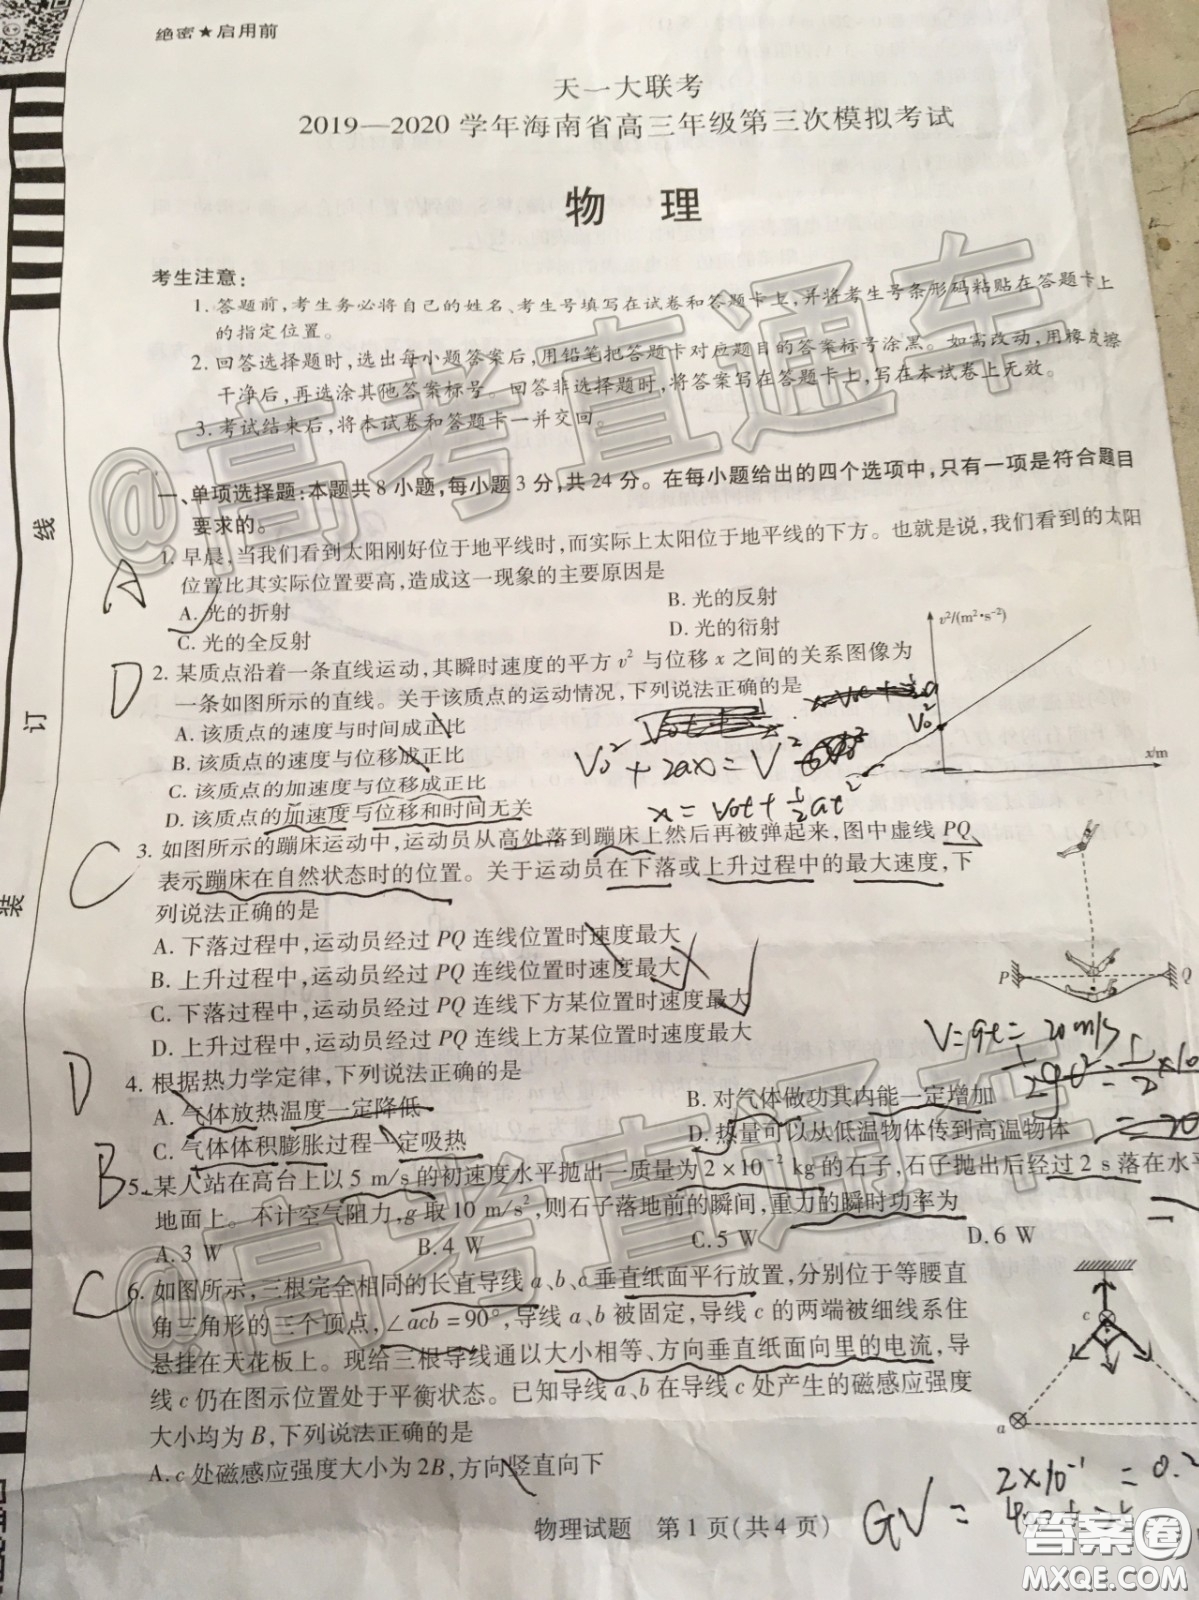 绝密★启用前
天一大联考
2019—2020学年海南省高三年级第三次模拟考试
物 理
考生注意:
1. 答题前,考生务必将自己的姓名、考生号填写在试卷和答题卡上,并将考生号条形码粘贴在答题卡上
的指定位置。
2. 回答选择题时,选出每小题答案后,用铅笔把答题卡对应题目的答案标号涂黑。如需改动,用橡皮擦
干净后,再选涂其他答案标号。回答非选择题时,将答案写在答题卡上,写在本试卷上无效。
3. 考试结束后,将本试卷和答题卡一并交回。
@高考直通车
一、单项选择题:本题共8小题,每小题3分,共24分。在每小题给出的四个选项中,只有一项是符合题目
要求的。
A
1. 早晨,当我们看到太阳刚好位于地平线时,而实际上太阳位于地平线的下方。也就是说,我们看到的太阳
位置比其实际位置要高,造成这一现象的主要原因是
A. 光的折射 B. 光的反射
C. 光的全反射 D. 光的衍射
v²/(m²·s⁻²)
D
2. 某质点沿着一条直线运动,其瞬时速度的平方 v² 与位移 x 之间的关系图像为
一条如图所示的直线。关于该质点的运动情况,下列说法正确的是
A. 该质点的速度与时间成正比
B. 该质点的速度与位移成正比
C. 该质点的加速度与位移成正比
D. 该质点的加速度与位移和时间无关
V₀²
x/m
V₀² + 2ax = V²
x = V₀t + ½at²
C
3. 如图所示的蹦床运动中,运动员从高处落到蹦床上然后再被弹起来,图中虚线 PQ
表示蹦床在自然状态时的位置。关于运动员在下落或上升过程中的最大速度,下
列说法正确的是
A. 下落过程中,运动员经过 PQ 连线位置时速度最大
B. 上升过程中,运动员经过 PQ 连线位置时速度最大
C. 下落过程中,运动员经过 PQ 连线下方某位置时速度最大
D. 上升过程中,运动员经过 PQ 连线上方某位置时速度最大
P
Q
V=gt=20m/s
D
4. 根据热力学定律,下列说法正确的是
A. 气体放热温度一定降低 B. 对气体做功其内能一定增加
C. 气体体积膨胀过程一定吸热 D. 热量可以从低温物体传到高温物体
B
5. 某人站在高台上以 5 m/s 的初速度水平抛出一质量为 2×10⁻² kg 的石子,石子抛出后经过 2 s 落在水平
地面上。不计空气阻力,g 取 10 m/s²,则石子落地前的瞬间,重力的瞬时功率为
A. 3 W B. 4 W C. 5 W D. 6 W
@高考直通车
C
6. 如图所示,三根完全相同的长直导线 a、b、c 垂直纸面平行放置,分别位于等腰直
角三角形的三个顶点,∠acb=90°,导线 a、b 被固定,导线 c 的两端被细线系住
悬挂在天花板上。现给三根导线通以大小相等、方向垂直纸面向里的电流,导
线 c 仍在图示位置处于平衡状态。已知导线 a、b 在导线 c 处产生的磁感应强度
大小均为 B,下列说法正确的是
A. c 处磁感应强度大小为 2B,方向竖直向下
c
a
2×10⁻¹ = 0.2
GV =
物理试题 第1页(共4页)
线
订
装
答案圈
MXQE.COM